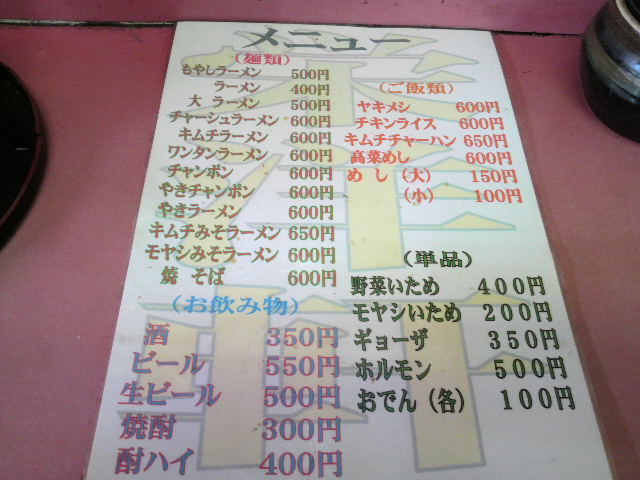 メニュー
(麺類)
もやしラーメン 500円
ラーメン 400円
大 ラーメン 500円
チャーシュラーメン 600円
キムチラーメン 600円
ワンタンラーメン 600円
チャンポン 600円
やきチャンポン 600円
やきラーメン 600円
キムチみそラーメン 650円
モヤシみそラーメン 600円
焼 そば 600円
(お飲み物)
酒 350円
ビール 550円
生ビール 500円
焼酎 300円
酎ハイ 400円
(ご飯類)
ヤキメシ 600円
チキンライス 600円
キムチチャーハン 650円
高菜めし 600円
めし (大) 150円
(小) 100円
(単品)
野菜いため 400円
モヤシいため 200円
ギョーザ 350円
ホルモン 500円
おでん(各) 100円